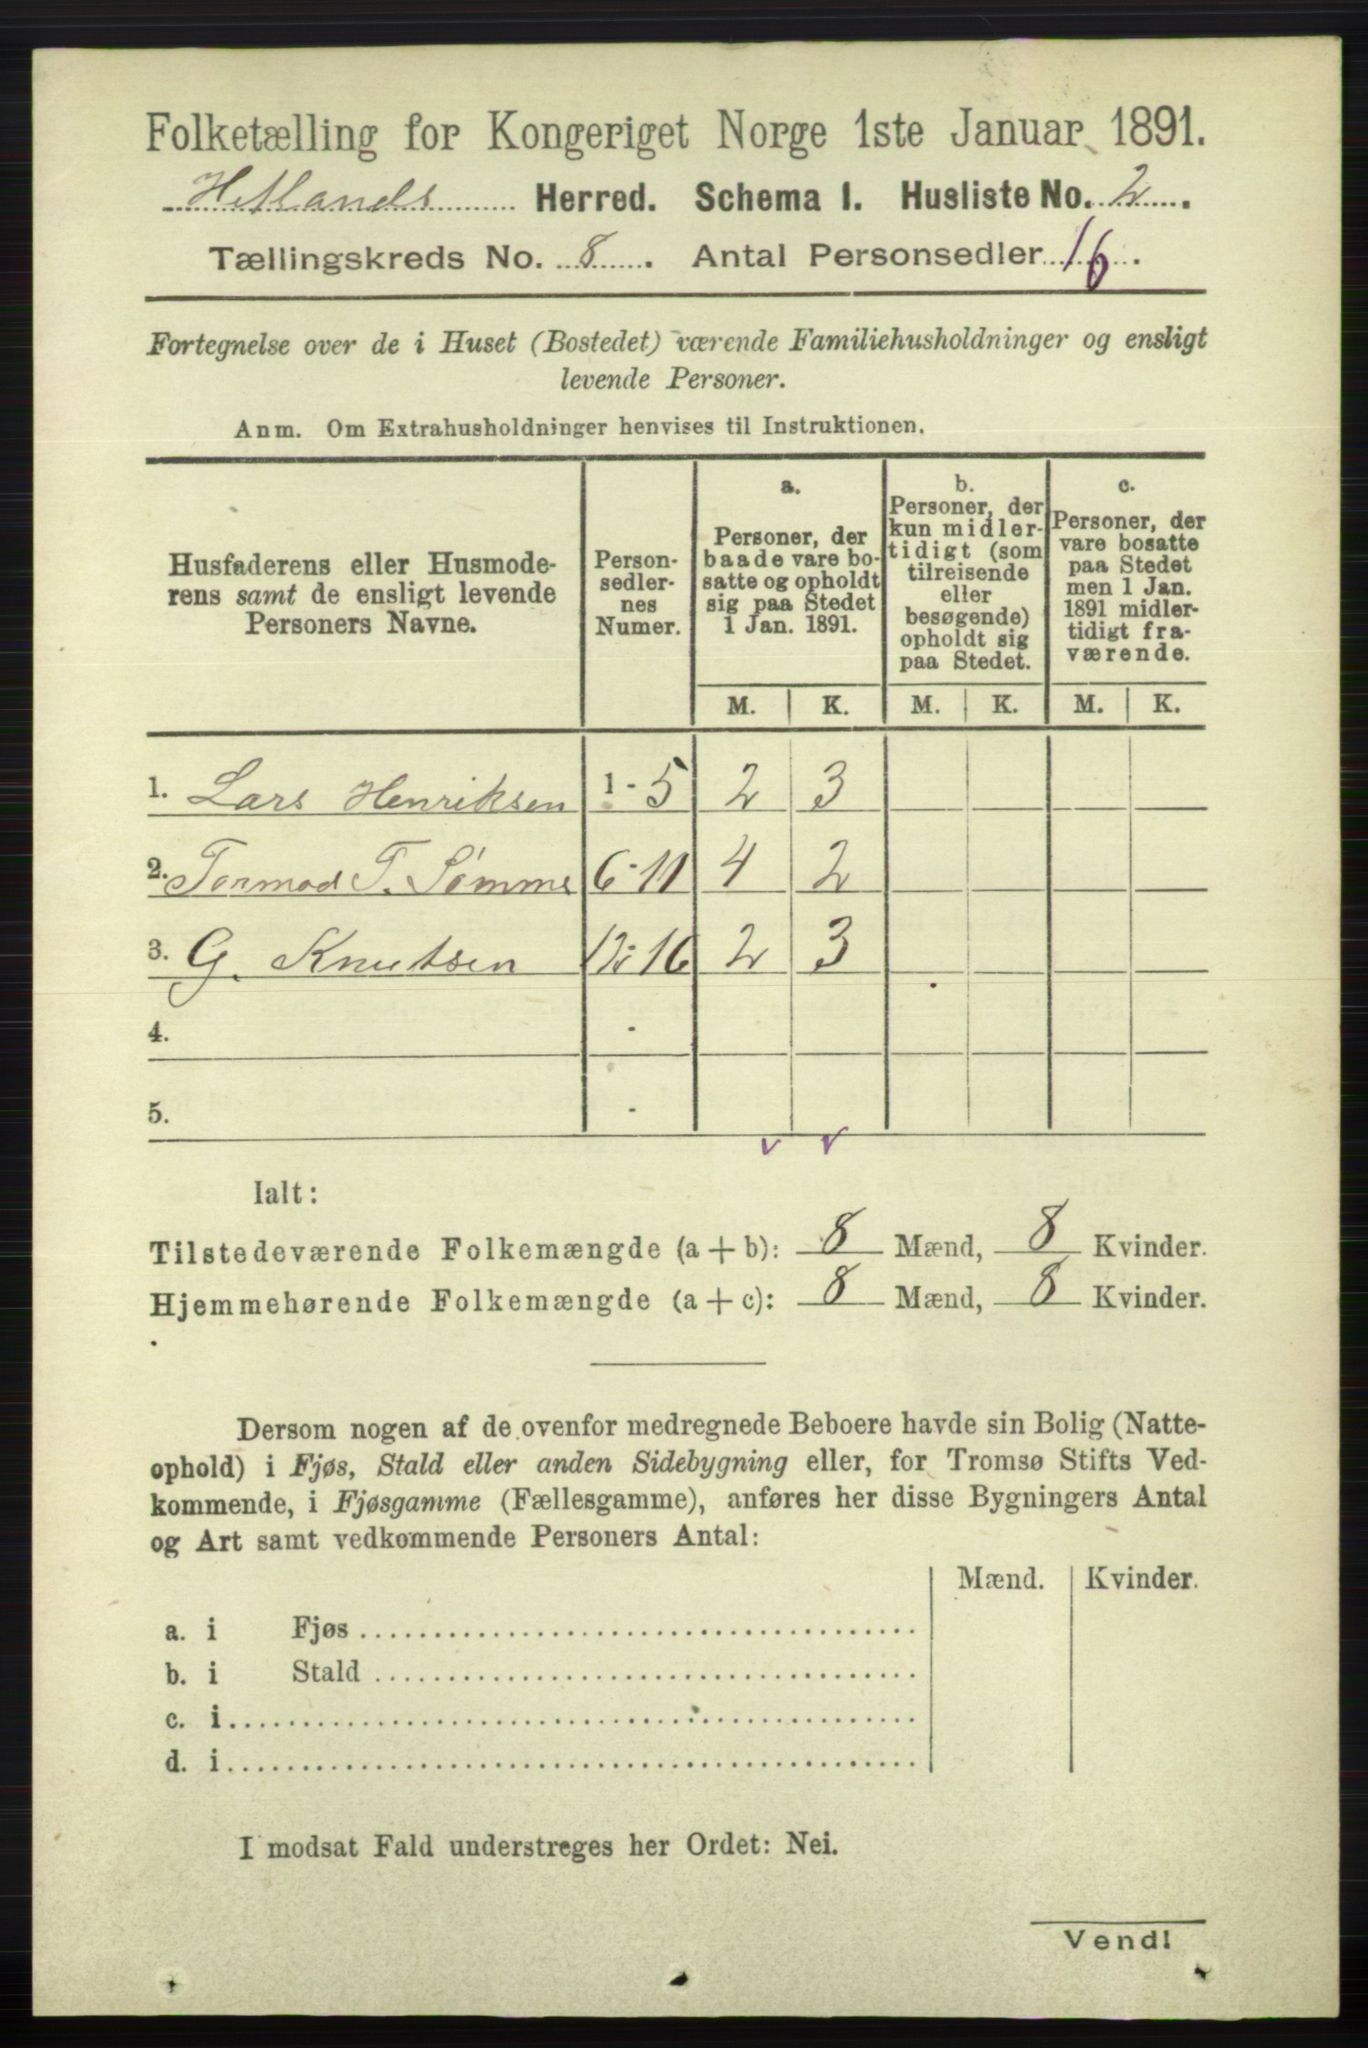 Folketælling for Kongeriget Norge 1ste Januar 1891.
Hetlands Herred. Schema I. Husliste No. 2.
Tællingskreds No. 8. Antal Personsedler 16.
Fortegnelse over de i Huset (Bostedet) værende Familiehusholdninger og ensligt
levende Personer.
Anm. Om Extrahusholdninger henvises til Instruktionen.
Husfaderens eller Husmode-
rens samt de ensligt levende
Personers Navne.
Person-
sedler-
nes
Numer.
a.
Personer, der
baade vare bo-
satte og opholdt
sig paa Stedet
1 Jan. 1891.
b.
Personer, der
kun midler-
tidigt (som
tilreisende
eller
besøgende)
opholdt sig
paa Stedet.
c.
Personer, der
vare bosatte
paa Stedet
men 1 Jan.
1891 midler-
tidigt fra-
værende.
M. K. M. K. M. K.
1. Lars Henriksen 1-5 2 3
2. Tormod T. Sømme 6-11 4 2
3. G. Knutsen 12-16 2 3
4. -
5. -
Ialt:
Tilstedeværende Folkemængde (a + b): 8 Mænd, 8 Kvinder.
Hjemmehørende Folkemængde (a + c): 8 Mænd, 8 Kvinder.
Dersom nogen af de ovenfor medregnede Beboere havde sin Bolig (Natte-
ophold) i Fjøs, Stald eller anden Sidebygning eller, for Tromsø Stifts Ved-
kommende, i Fjøsgamme (Fællesgamme), anføres her disse Bygningers Antal
og Art samt vedkommende Personers Antal:
Mænd. Kvinder.
a. i Fjøs
b. i Stald
c. i
d. i
I modsat Fald understreges her Ordet: Nei.
Vend!